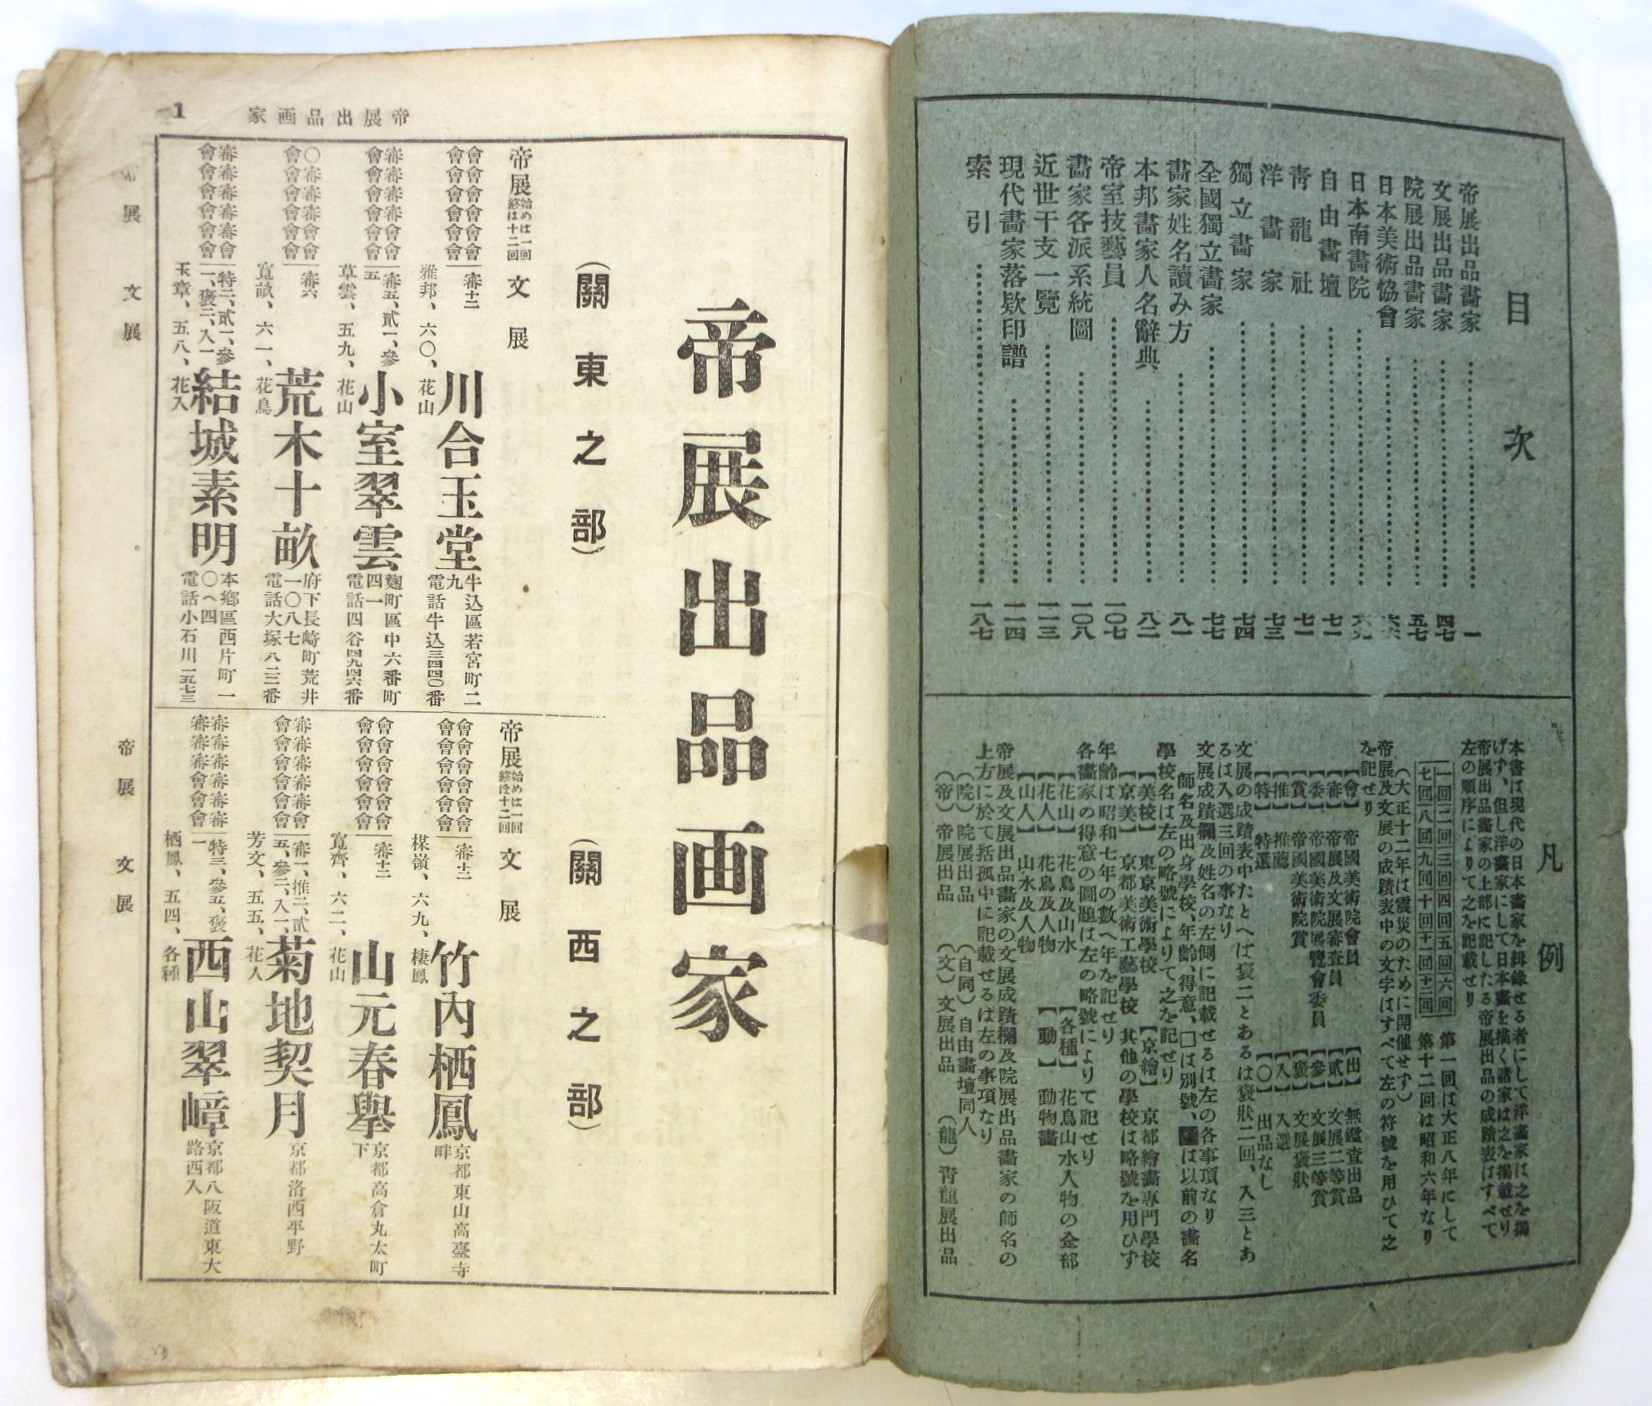 目次
帝展出品畫家 一
文展出品畫家 四七
院展出品畫家 五七
日本美術協會
日本南畫院
自由畫壇 七一
靑龍社 七一
洋畫家 七三
獨立畫家 七四
全國獨立畫家 七七
畫家姓名讀み方 八一
本邦畫家人名辭典 八二
帝室技藝員 一〇七
畫家各派系統圖 一〇八
近世干支一覽 一一三
現代畫家落欵印譜 一一四
索引 一八七
凡例
本書は現代の日本畫家を輯錄せる者にして洋畫家は之を揭
げず、但し洋畫家にして日本畫を描く諸家は之を揭載せり
帝展出品畫家の上部に記したる帝展出品の成蹟表はすべて
左の順序によりて之を記載せり
一回二回三回四回五回六回 第一回は大正八年にして
七回八回九回十回十一回十二回 第十二回は昭和六年なり
(大正十二年は震災のために開催せず)
帝展及文展の成蹟表中の文字はすべて左の符號を用ひて之
を記せり
【會】 帝國美術院會員 【出】 無鑑査出品
【審】 帝展及文展審査員 【貳】 文展二等賞
【委】 帝國美術院展覽會委員 【參】 文展三等賞
【賞】 帝國美術院賞 【褒】 文展褒狀
【推】 推薦 【入】 入選
【特】 特選 【〇】 出品なし
文展の成蹟表中たとへば褒二とあるは褒狀二回、入三とあ
るは入選三回の事なり
文展成蹟欄及姓名の左側に記載せるは左の各事項なり
師名及出身學校、年齡、得意、□は別號、は以前の畫名
學校名は左の略號によりて之を記せり
【美校】 東京美術學校 【京繪】 京都繪畫專門學校
【京美】 京都美術工藝學校 其他の學校は略號を用ひず
年齡は昭和七年の數へ年を記せり
各畫家の得意の圖題は左の略號によりて記せり
【花山】 花鳥及山水 【各種】 花鳥山水人物の全部
【花人】 花鳥及人物 【動】 動物畵
【山人】 山水及人物
帝展及文展出品畫家の文展成蹟欄及院展出品畫家の師名の
上方に於て括孤中に記載せるは左の事項なり
(院)院展出品 (自同)自由畫壇同人
(帝)帝展出品 (文)文展出品 (龍)靑龍展出品
帝展出品画家
1
帝展出品画家
(關東之部)
帝展 始めは一回 終は十二回 文展
會會會會會會
會會會會會會
審十二
雅邦、六〇、花山
川合玉堂
牛込區若宮町二
九
電話牛込三四四〇番
審審審審會會
會會會會會會
審五、貳一、參
五
草雲、五九、花山
小室翠雲
麴町區中六番町
四一
電話四谷四九四六番
〇審審審會會
會會會會會會
審六
寬畝、六一、花鳥
荒木十畝
府下長崎町荒井
一〇八七
電話大塚八二三番
審審審審審會
會會會會會會
特二、貳一、參
一、褒三、入一
玉章、五八、花人
結城素明
本鄕區西片町一
〇へ四
電話小石川一五七三
(關西之部)
帝展 始めは一回 終は十二回 文展
會會會會會會
會會會會會會
審十二
楳嶺、六九、棲鳳
竹內栖鳳
京都東山高臺寺
畔
會會會會會會
會會會會會會
審十二
寬齊、六二、花山
山元春擧
京都高倉丸太町
下
審審審審會會
會會會會會會
審一、推二、貳
五、參二、入一
芳文、五五、花人
菊地契月
京都洛西平野
審審審審審審
審審審會會會
特三、參五、褒
一
栖鳳、五四、各種
西山翠嶂
京都八阪道東大
路西入
帝展 文展
帝展 文展